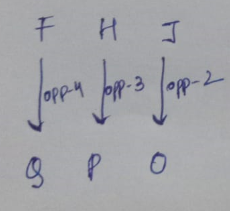 F H J
opp-4 opp-3 opp-2
Q P O